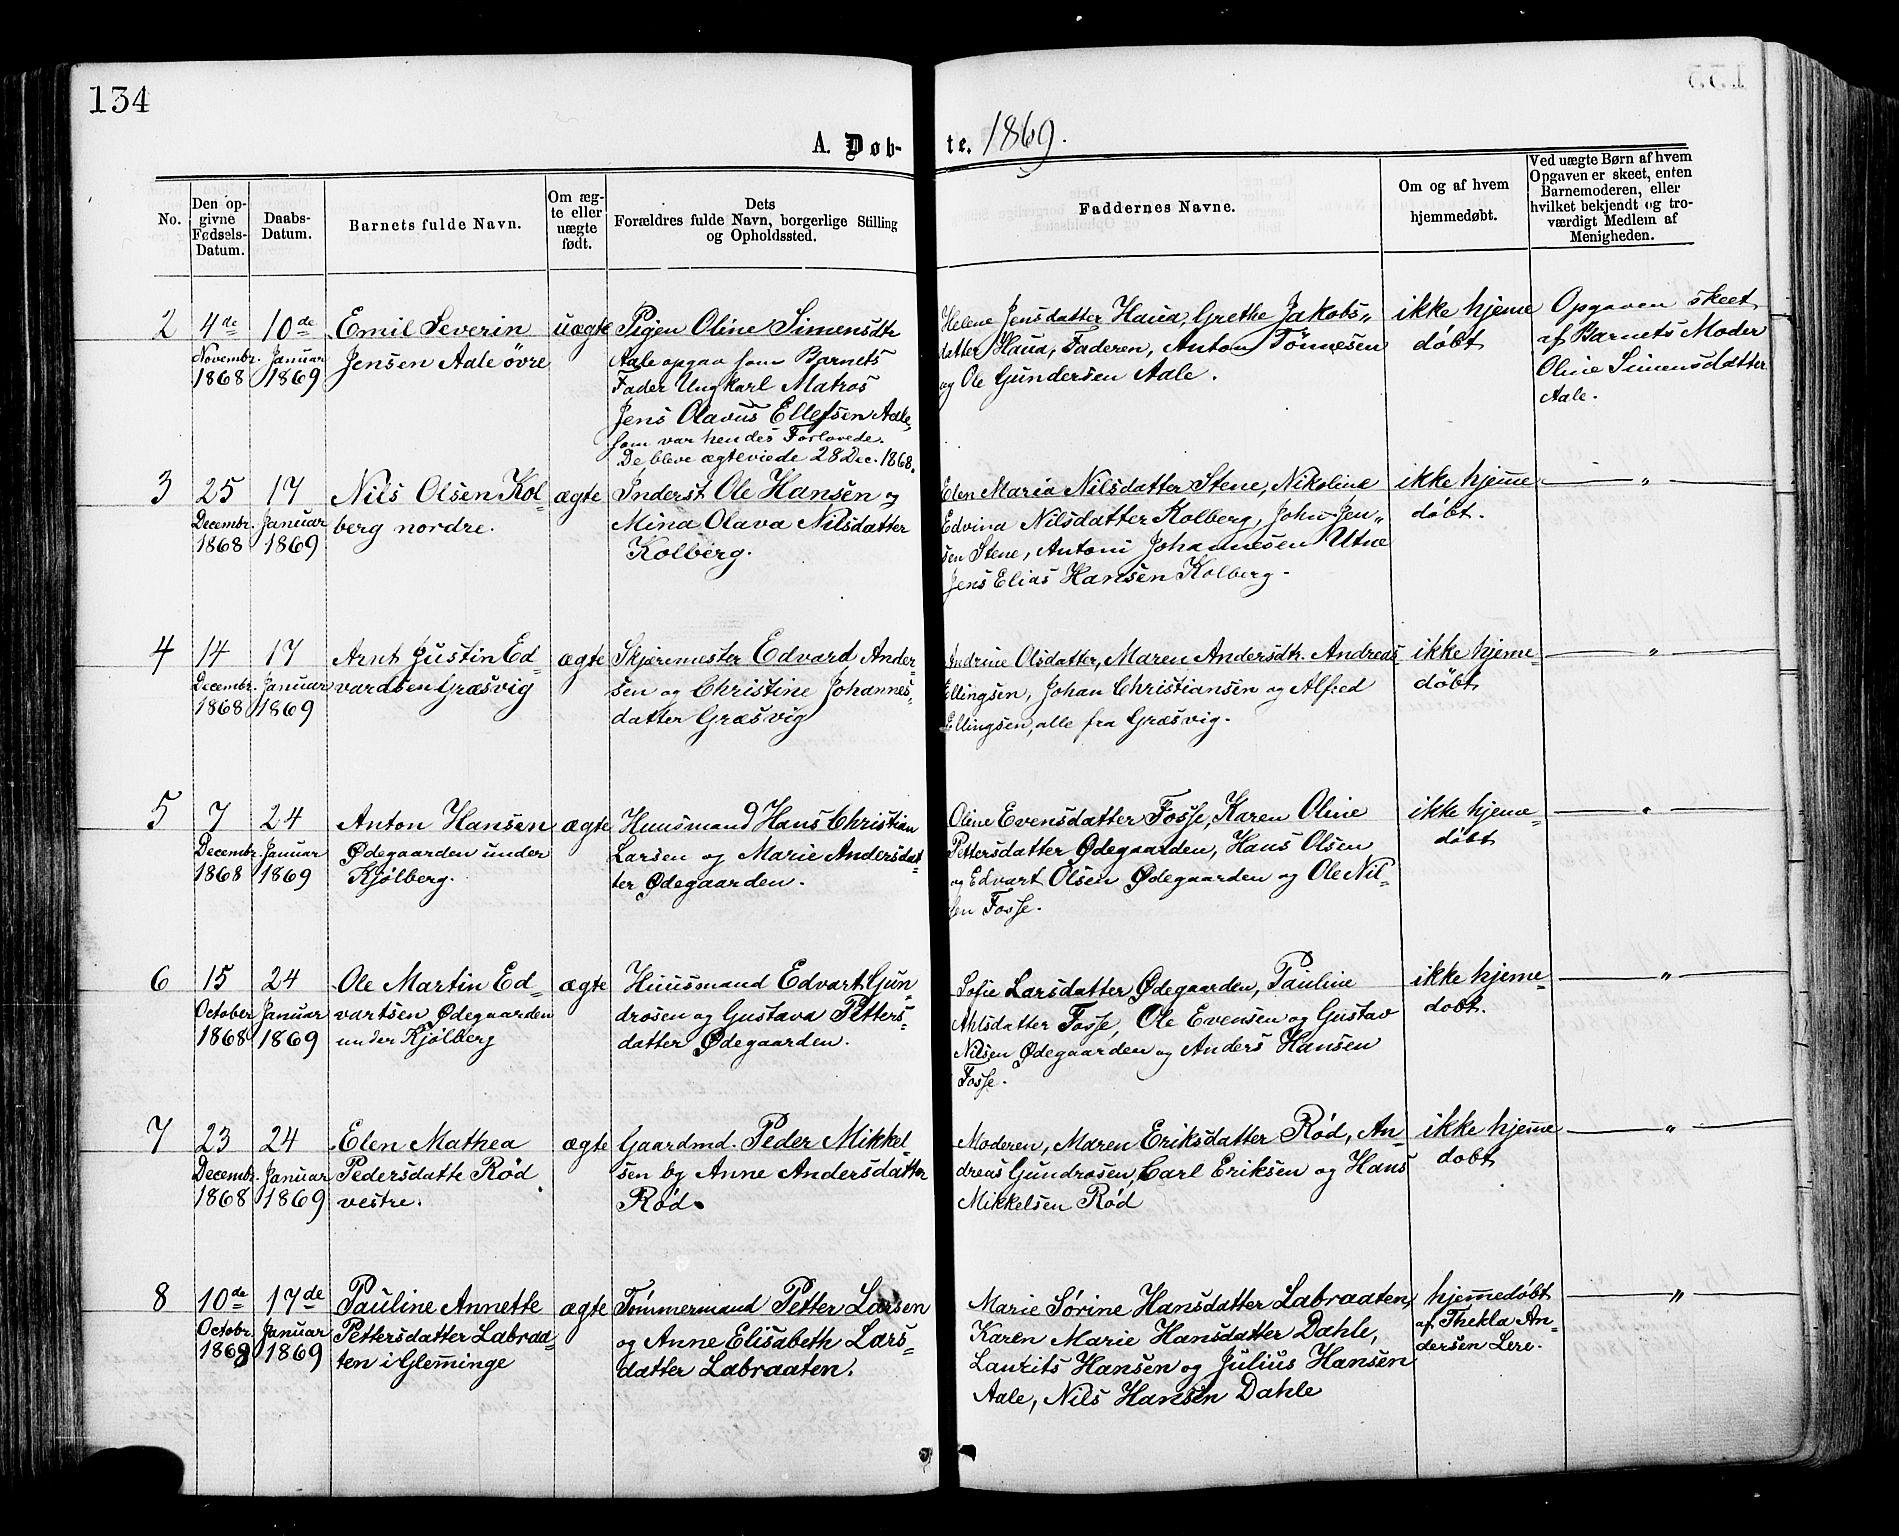 134
A. Døb-
te. 1869.
No.
Den op-
givne
Fødsels-
Datum.
Daabs-
Datum.
Barnets fulde Navn.
Om æg-
te eller
uægte
født.
Dets
Forældres fulde Navn, borgerlige Stilling
og Opholdssted.
Faddernes Navne.
Om og af hvem
hjemmedøbt.
Ved uægte Børn af hvem
Opgaven er skeet, enten
Barnemoderen, eller
hvilket bekjendt og tro-
værdigt Medlem af
Menigheden.
2
4de
Novembr.
1868
10de
Januar
1869
Emil Severin
Jensen Aale övre
uægte
Pigen Oline Simensdtr
Aale opgav som Barnets
Fader Ungkarl Matros
Jens Olavus Ellefsen Aale,
som var hendes Forlovede.
De bleve ægteviede 28 Dec. 1868.
Helene Jensdatter Haua, Grethe Jakobs„
datter Haua, Faderen, Anton Tönnesen
og Ole Gundersen Aale.
ikke hjeme
døbt
Opgaven skeet
af Barnets Moder
Oline Simensdatter
Aale.
3
25
Decembr.
1868
17
Januar
1869
Nils Olsen Kol=
berg nordre.
ægte
Inderst Ole Hansen og
Mina Olava Nilsdatter
Kolberg.
Elen Maria Nilsdatter Stene, Nikoline
Edvina Nilsdatter Kolberg, John Jen„
sen Stene, Antoni Johannesen Utne
Jens Elias Hansen Kolberg.
ikke hjem̅e
døbt.
— „ —
4
14
Decembr.
1868
17
Januar
1869
Arnt Justin Ed=
vardsen Græsvig
ægte
Skjæremester Edvard Ander=
sen og Christine Johannes=
datter Græsvig
Andrine Olsdatter, Maren Andersdtr. Andreas
Ellingsen, Johan Christiansen og Alfred
Ellingsen, alle fra Græsvig.
ikke hjeme=
døbt
— „ —
5
7
Decembr.
1868
24
Januar
1869
Anton Hansen
Ødegaarden under
Kjölberg.
ægte
Huusmand Hans Christian
Larsen og Marie Andersdat=
ter Ødegaarden.
Oline Evensdatter Fosse, Karen Oline
Pettersdatter Ødegaarden, Hans Olsen
og Edvart Olsen Ødegaarden og Ole Nil=
sen Fosse.
ikke hjeme=
døbt
— „ —
6
15
October
1868
24
Januar
1869
Ole Martin Ed=
vartsen Ødegaarden
under Kjölberg
ægte
Huusmand Edvart Gun=
drosen og Gustava Petters=
datter Ødegaarden.
Sofie Larsdatter Ødegaarden, Pauline
Ahlsdatter Fosse, Ole Evensen og Gustav
Nilsen Ødegaarden og Anders Hansen
Fosse.
ikke hjeme=
døbt.
— „ —
7
23
Decembr.
1868
24
Januar
1869
Elen Mathea
Pedersdatte Rød
vestre.
ægte
Gaardmd. Peder Mikkel
sen og Anne Andersdatter
Rød.
Moderen, Maren Eriksdatter Rød, An=
dreas Gundrosen, Carl Eriksen og Hans
Mikkelsen Rød
ikke hjem̅e
døbt
— „ —
8
10de
Octobr.
1868
17de
Januar
1869
Pauline Annette
Pettersdatter Labraa=
ten i Glem̅inge
ægte
Tömmermand Petter Larsen
og Anne Elisabeth Lars=
datter Labraaten.
Marie Sörine Hansdatter Labraaten,
Karen Marie Hansdatter Dahle,
Laurits Hansen og Julius Hansen
Aale, Nils Hansen Dahle
hjem̅edøbt
af Thekla An=
dersen Lere.
— „ —